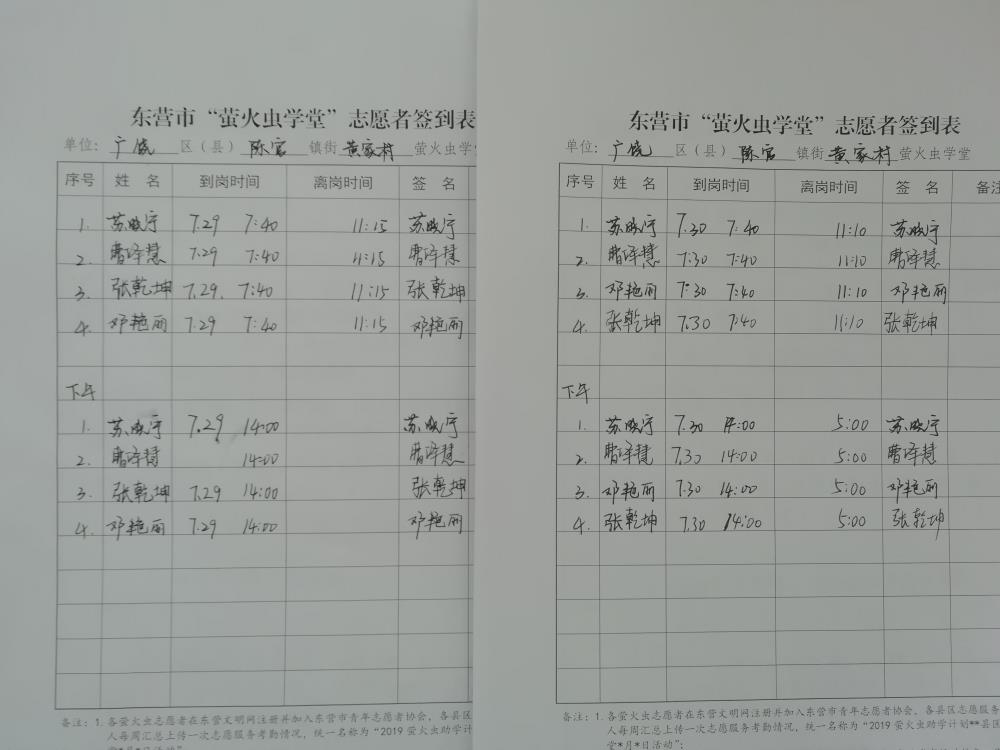 东营市“萤火虫学堂”志愿者签到表
单位：广饶区（县）陈官镇街黄家村萤火虫学
序号 姓名 到岗时间 离岗时间 签名
1. 苏晓宇 7.29 7:40 11:15 苏晓宇
2. 曹泽慧 7.29 7:40 11:15 曹泽慧
3. 张乾坤 7.29. 7:40 11:15 张乾坤
4. 邓艳丽 7.29 7:40 11:15 邓艳丽
下午
1. 苏晓宇 7.29 14:00 苏晓宇
2. 曹泽慧 14:00 曹泽慧
3. 张乾坤 7.29 14:00 张乾坤
4. 邓艳丽 7.29 14:00 邓艳丽
备注：1. 各萤火虫志愿者在东营文明网注册并加入东营市青年志愿者协会，各县区
人每周汇总上传一次志愿服务考勤情况，统一名称为“2019 萤火虫助学计
堂*月*日活动”；
东营市“萤火虫学堂”志愿者签到表
单位：广饶区（县）陈官镇街黄家村萤火虫学堂
序号 姓名 到岗时间 离岗时间 签名 备注
1. 苏晓宇 7.30 7:40 11:10 苏晓宇
2. 曹泽慧 7:30 7:40 11:10 曹泽慧
3. 邓艳丽 7:30 7:40 11:10 邓艳丽
4. 张乾坤 7.30 7:40 11:10 张乾坤
下午
1. 苏晓宇 7.30 14:00 5:00 苏晓宇
2. 曹泽慧 7.30 14:00 5:00 曹泽慧
3. 邓艳丽 7.30 14:00 5:00 邓艳丽
4. 张乾坤 7.30 14:00 5:00 张乾坤
备注：1. 各萤火虫志愿者在东营文明网注册并加入东营市青年志愿者协会，各县区志愿服
人每周汇总上传一次志愿服务考勤情况，统一名称为“2019 萤火虫助学计划**县区
堂*月*日活动”；